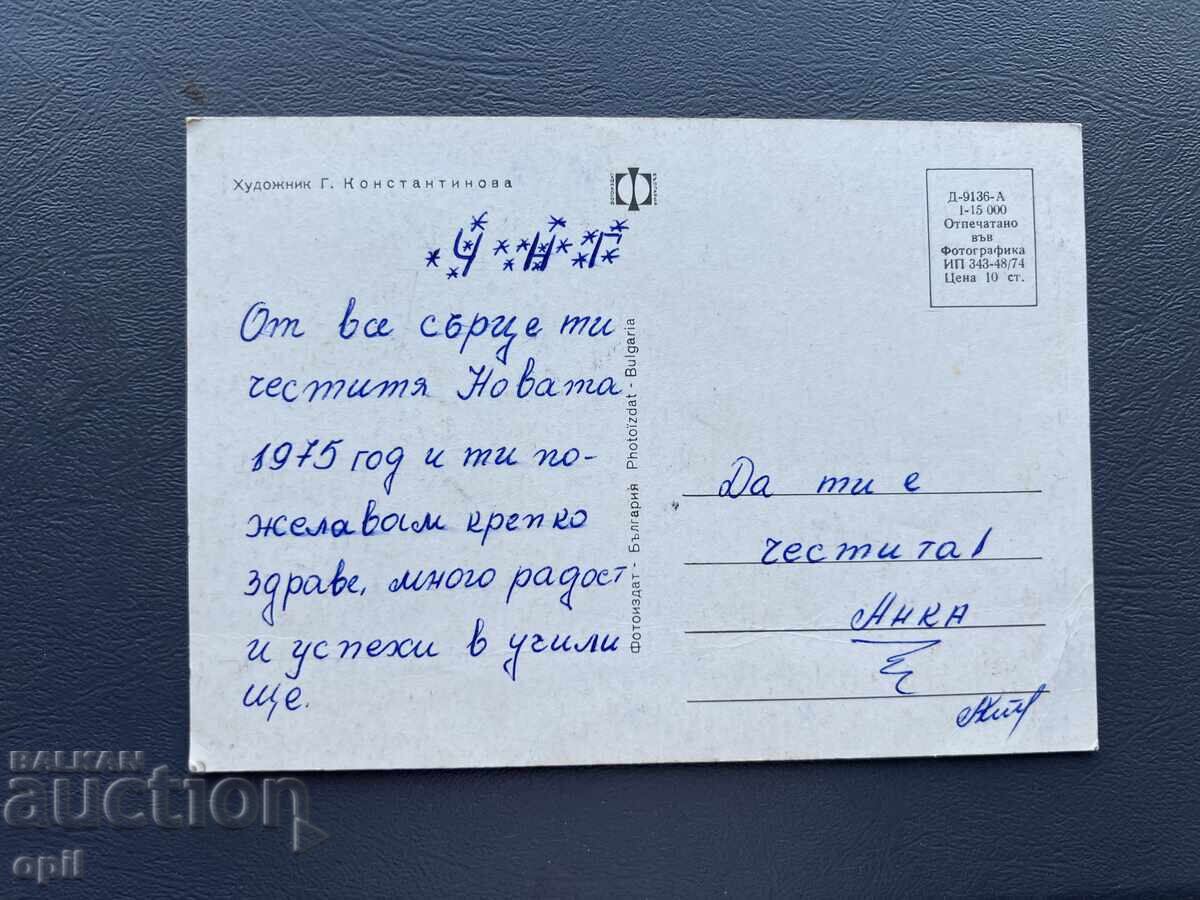 Художник Г. Константинова
ФОТОИЗДАТ
Д-9136-А
1-15 000
Отпечатано
във
Фотографика
ИП 343-48/74
Цена 10 ст.
ЧНГ
От все сърце ти
честитя Новата
1975 год и ти по-
желавам крепко
здраве, много радост
и успехи в учили
ще.
Фотоиздат - България Photoizdat - Bulgaria
Да ти е
честита!
Анка
BALKAN
auction
opil